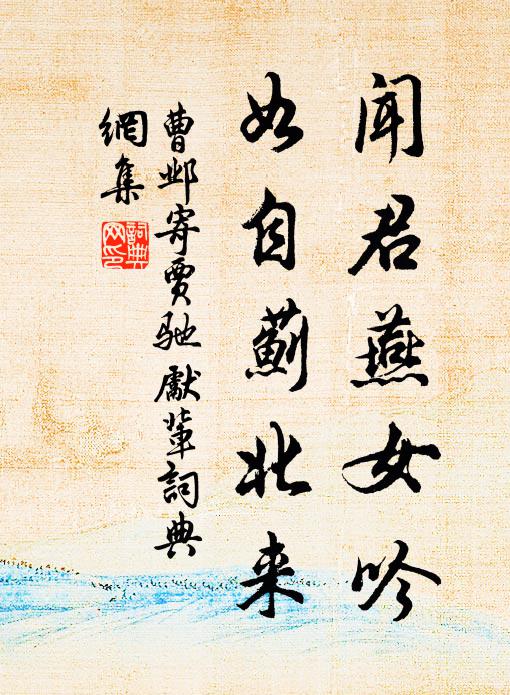 闻君燕女吟
如自蓟北来
曹邺寄贾驰 獻葦詞典
網集
詞典网印